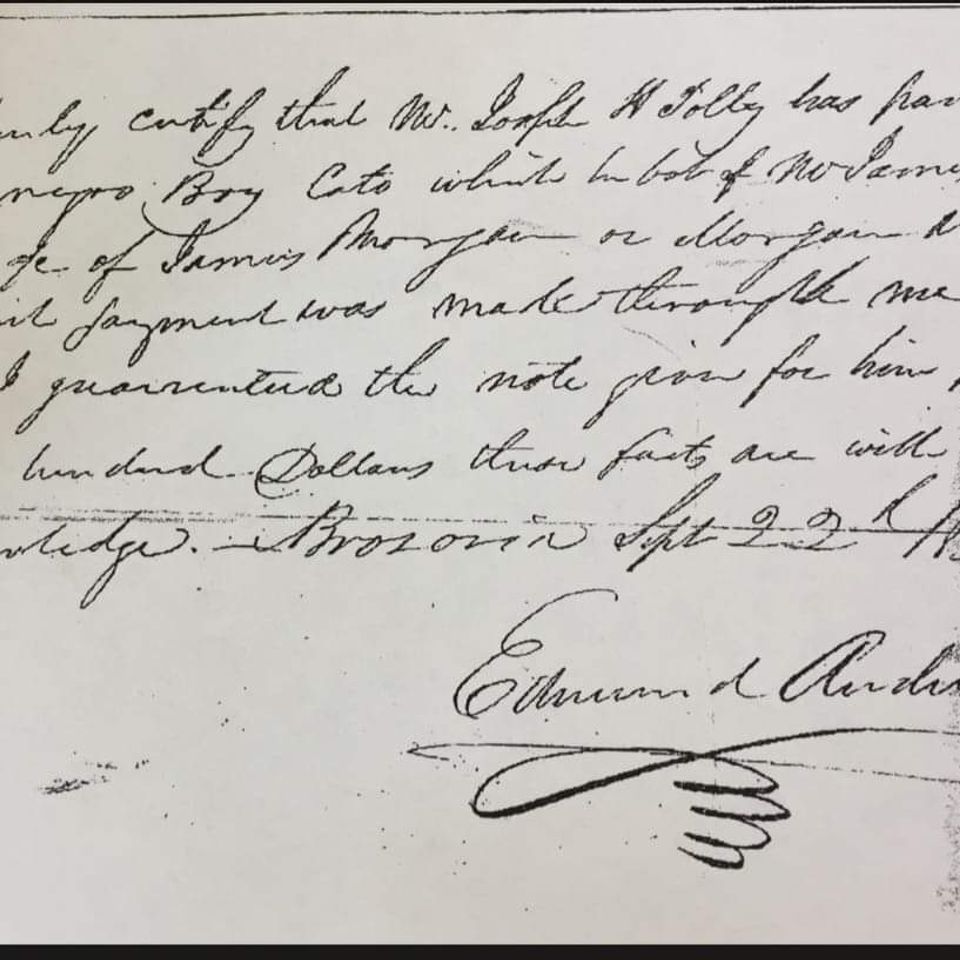 certify that Mr. Joseph H Polley has
negro Boy Cato which he bot of Mr James
of James Morgan or Morgan &
payment was made through me
I guarrenteed the note given for him
hundred Dollars these facts are with
wledge. Brazoria Sept 22d 18
Edmund Andr